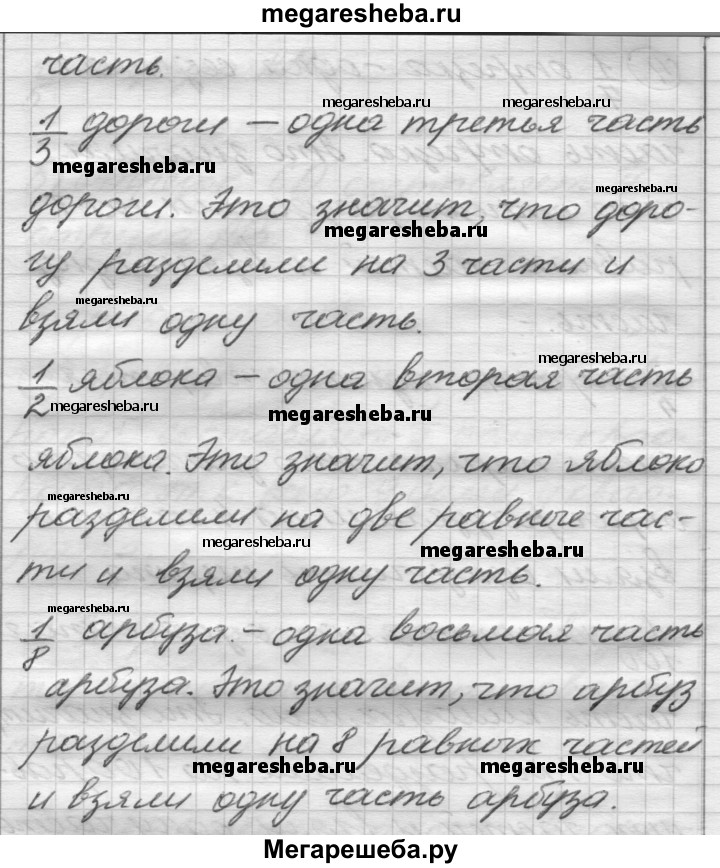 megaresheba.ru
часть.
megaresheba.ru megaresheba.ru
1/3 дороги – одна третья часть
megaresheba.ru
megaresheba.ru
дороги. Это значит, что доро-
megaresheba.ru
гу разделили на 3 части и
megaresheba.ru
взяли одну часть.
megaresheba.ru
1/2 яблока – одна вторая часть
megaresheba.ru megaresheba.ru
яблока. Это значит, что яблоко
megaresheba.ru
разделили на две равные час-
megaresheba.ru megaresheba.ru
ти и взяли одну часть.
megaresheba.ru
1/8 арбуза. – одна восьмая часть
арбуза. Это значит, что арбуз
разделили на 8 равных частей
megaresheba.ru megaresheba.ru
и взяли одну часть арбуза.
Мегарешеба.ру